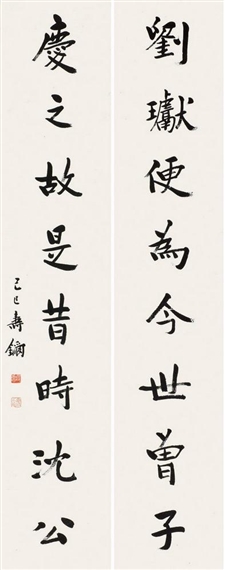 劉瓛便為今世曾子
慶之故是昔時沈公
己巳壽鏞